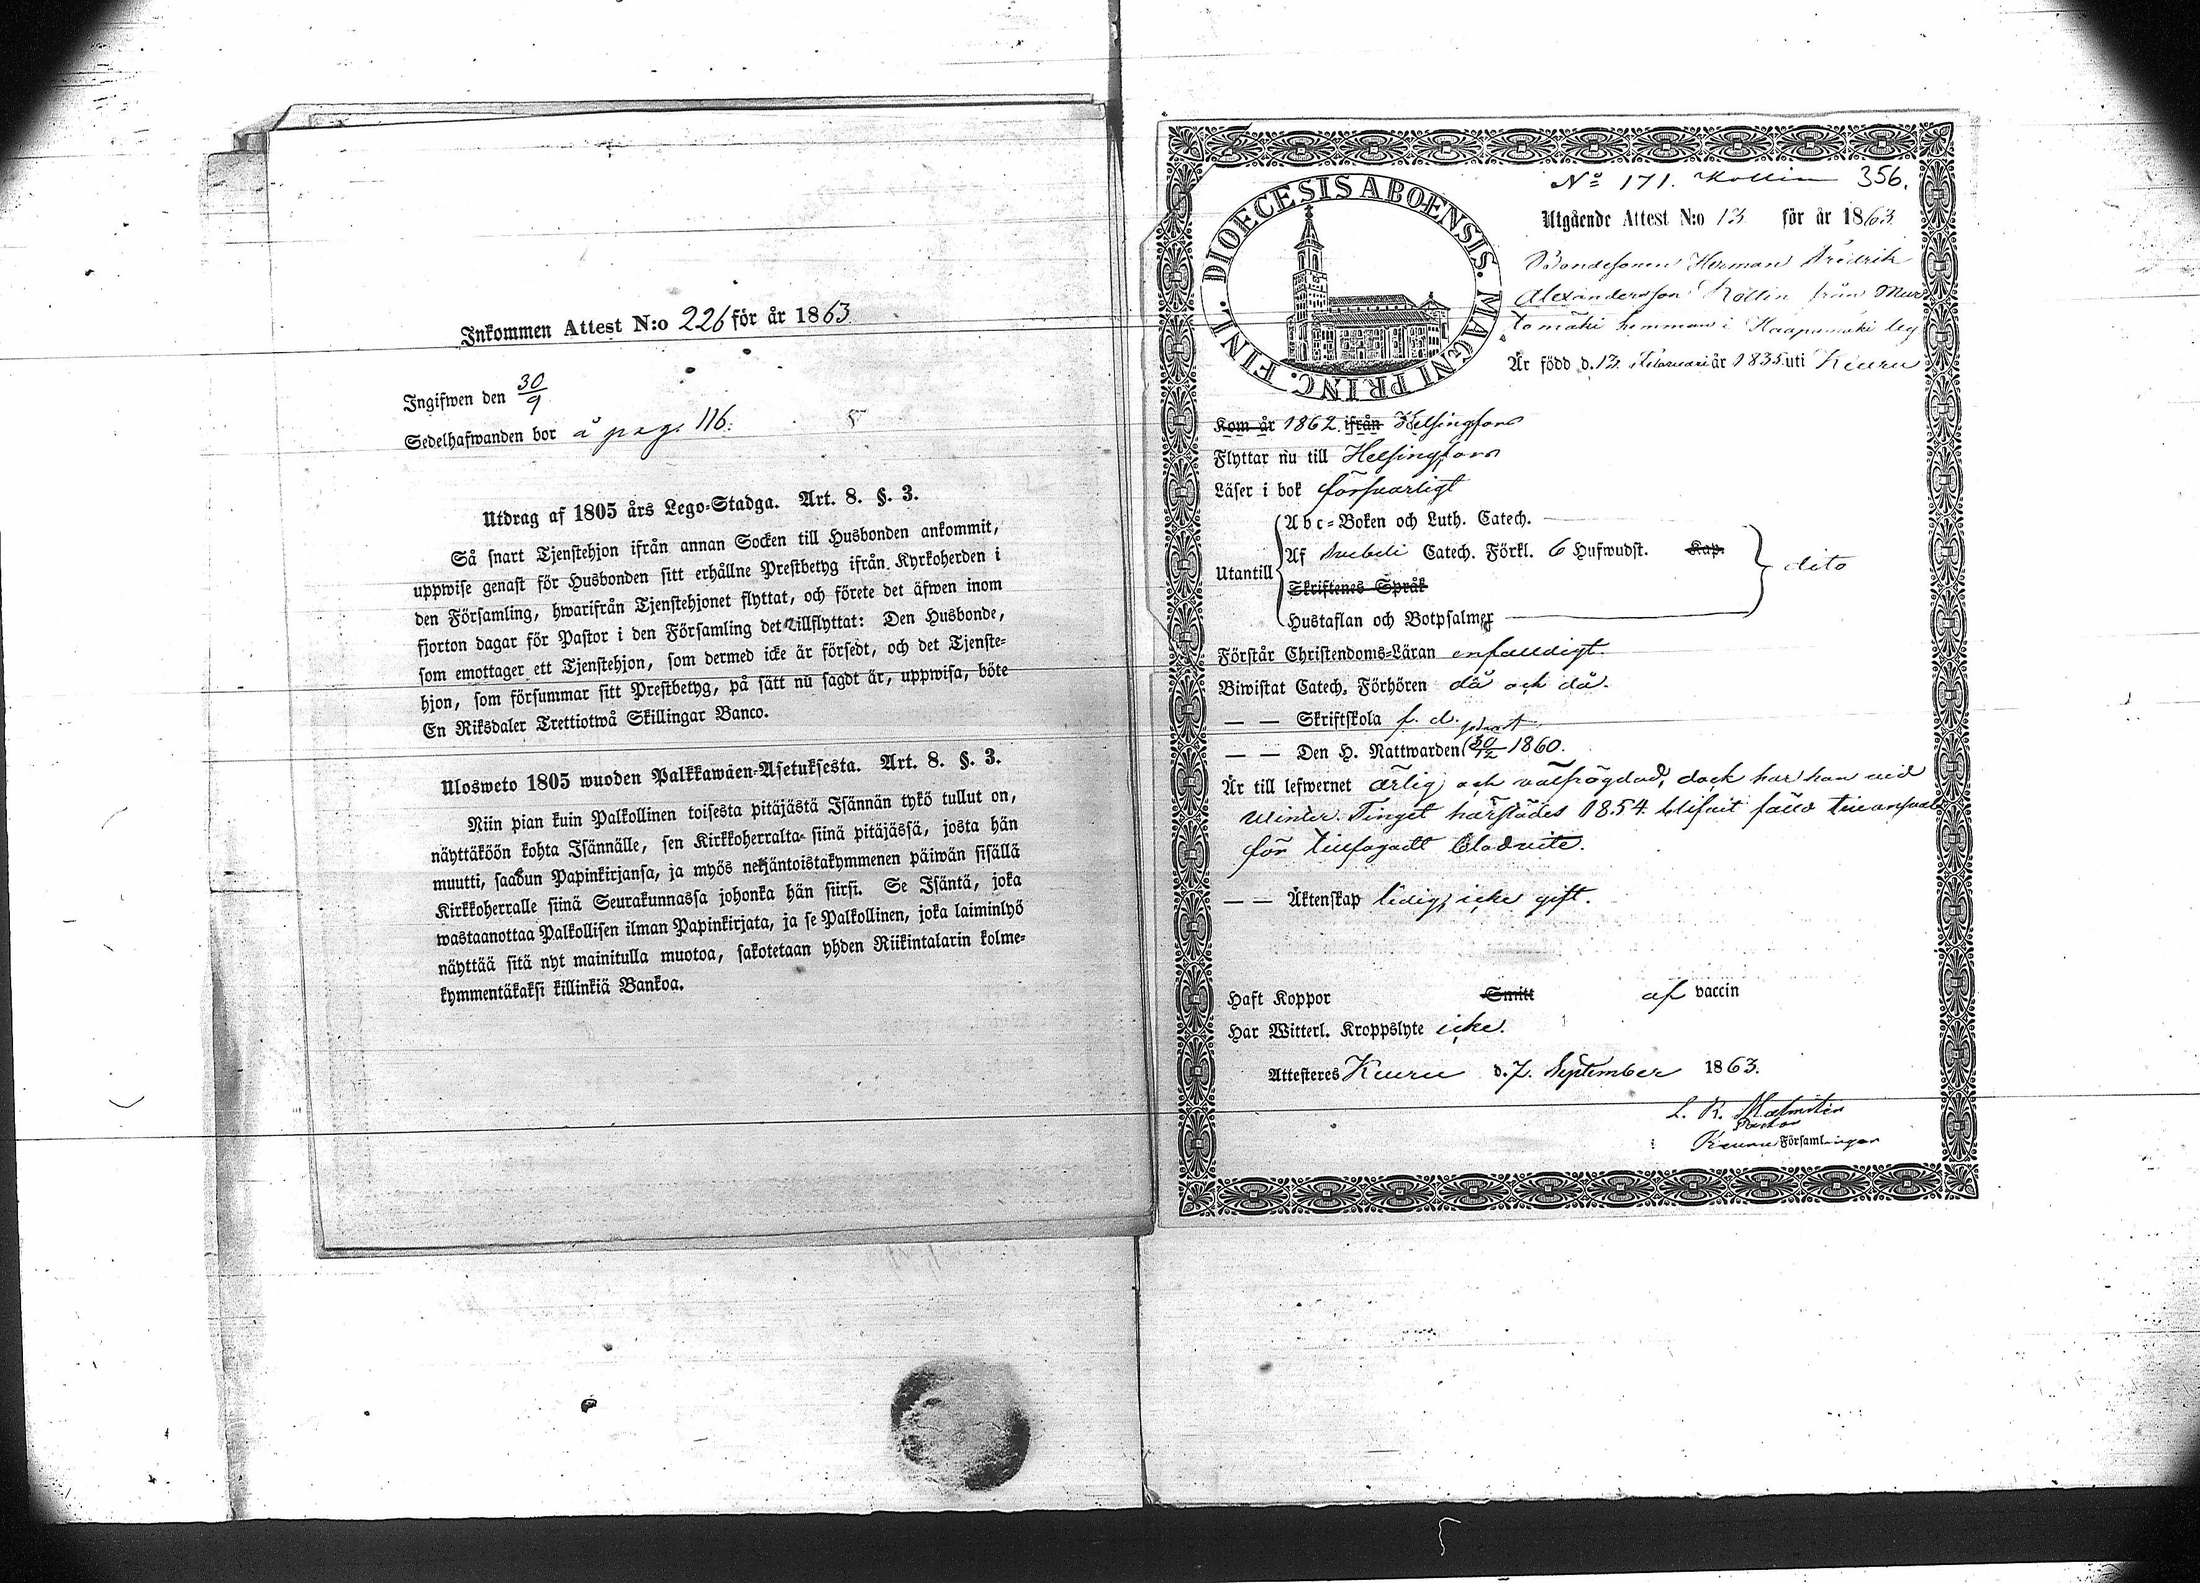 Inkommen Attest N:o 226 för år 1863
Ingifwen den 30/9
Sedelhafwanden bor å pag. 116.
Utdrag af 1805 års Lego-Stadga. Art. 8. §. 3.
Så snart Tjenstehjon ifrån annan Socken till Husbonden ankommit,
uppwise genast för Husbonden sitt erhållne Prestbetyg ifrån Kyrkoherden i
den Församling, hwarifrån Tjenstehjonet flyttat, och förete det äfwen inom
fjorton dagar för Pastor i den Församling det tillflyttat: Den Husbonde,
som emottager ett Tjenstehjon, som dermed icke är försedt, och det Tjenste-
hjon, som försummar sitt Prestbetyg, på sätt nu sagdt är, uppwisa, böte
En Riksdaler Trettiotwå Skillingar Banco.
Ulosweto 1805 wuoden Palkkawäen-Asetuksesta. Art. 8. §. 3.
Niin pian kuin Palkollinen toisesta pitäjästä Isännän tykö tullut on,
näyttäköön kohta Isännälle, sen Kirkkoherralta siinä pitäjässä, josta hän
muutti, saadun Papinkirjansa, ja myös neljäntoistakymmenen päiwän sisällä
Kirkkoherralle siinä Seurakunnassa johonka hän siirsi. Se Isäntä, joka
wastaanottaa Palkollisen ilman Papinkirjata, ja se Palkollinen, joka laiminlyö
näyttää sitä nyt mainitulla muotoa, sakotetaan yhden Riikintalarin kolme-
kymmentäkaksi killinkiä Bankoa.
DIOECESIS ABOENSIS. MAGNI PRINC. FINL.
No 171. Kollin 356.
Utgående Attest N:o 13 för år 1863
Bondesonen Herman Fredrik
Alexandersson Kollin från Mus
tomäki hemman i Haapamäki by
Är född d. 13. Februari år 1835 uti Kuru
Kom år 1862 ifrån Helsingfors
Flyttar nu till Helsingfors
Läser i bok försvarligt
Abc-Boken och Luth. Catech.
Utantill Af Svebeli Catech. Förkl. 6 Hufwudst. Kap. dito
Skriftenes Språk
Hustaflan och Botpsalmer
Förstår Christendoms-Läran enfaldigt.
Biwistat Catech. Förhören då och då.
— — Skriftskola f. d.
— — Den H. Nattwarden 30/12 1860.
Är till lefwernet ärlig och välfrägdad, dock har han vid
Winter Tinget härstädes 1854 blifvit fälld till ansvar
för tillfogadt blodvite.
— — Äktenskap ledig, icke gift.
Haft Koppor Smitt af vaccin
Har Witterl. Kroppslyte icke.
Attesteres Kuru d. 7. September 1863.
L. R. Malmstén
Pastor
Kuru Församlingar